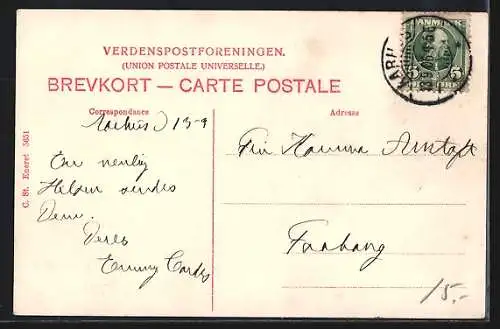 VERDENSPOSTFORENINGEN.
(UNION POSTALE UNIVERSELLE.)
BREVKORT — CARTE POSTALE
DANMARK
5 5
AARHUS
Correspondance
Adresse
Aarhus D 13-9
En venlig
Hilsen sendes
Dem.
Deres
Emmy
Hanna
Faaborg
C. St. Eneret 3651
15.-